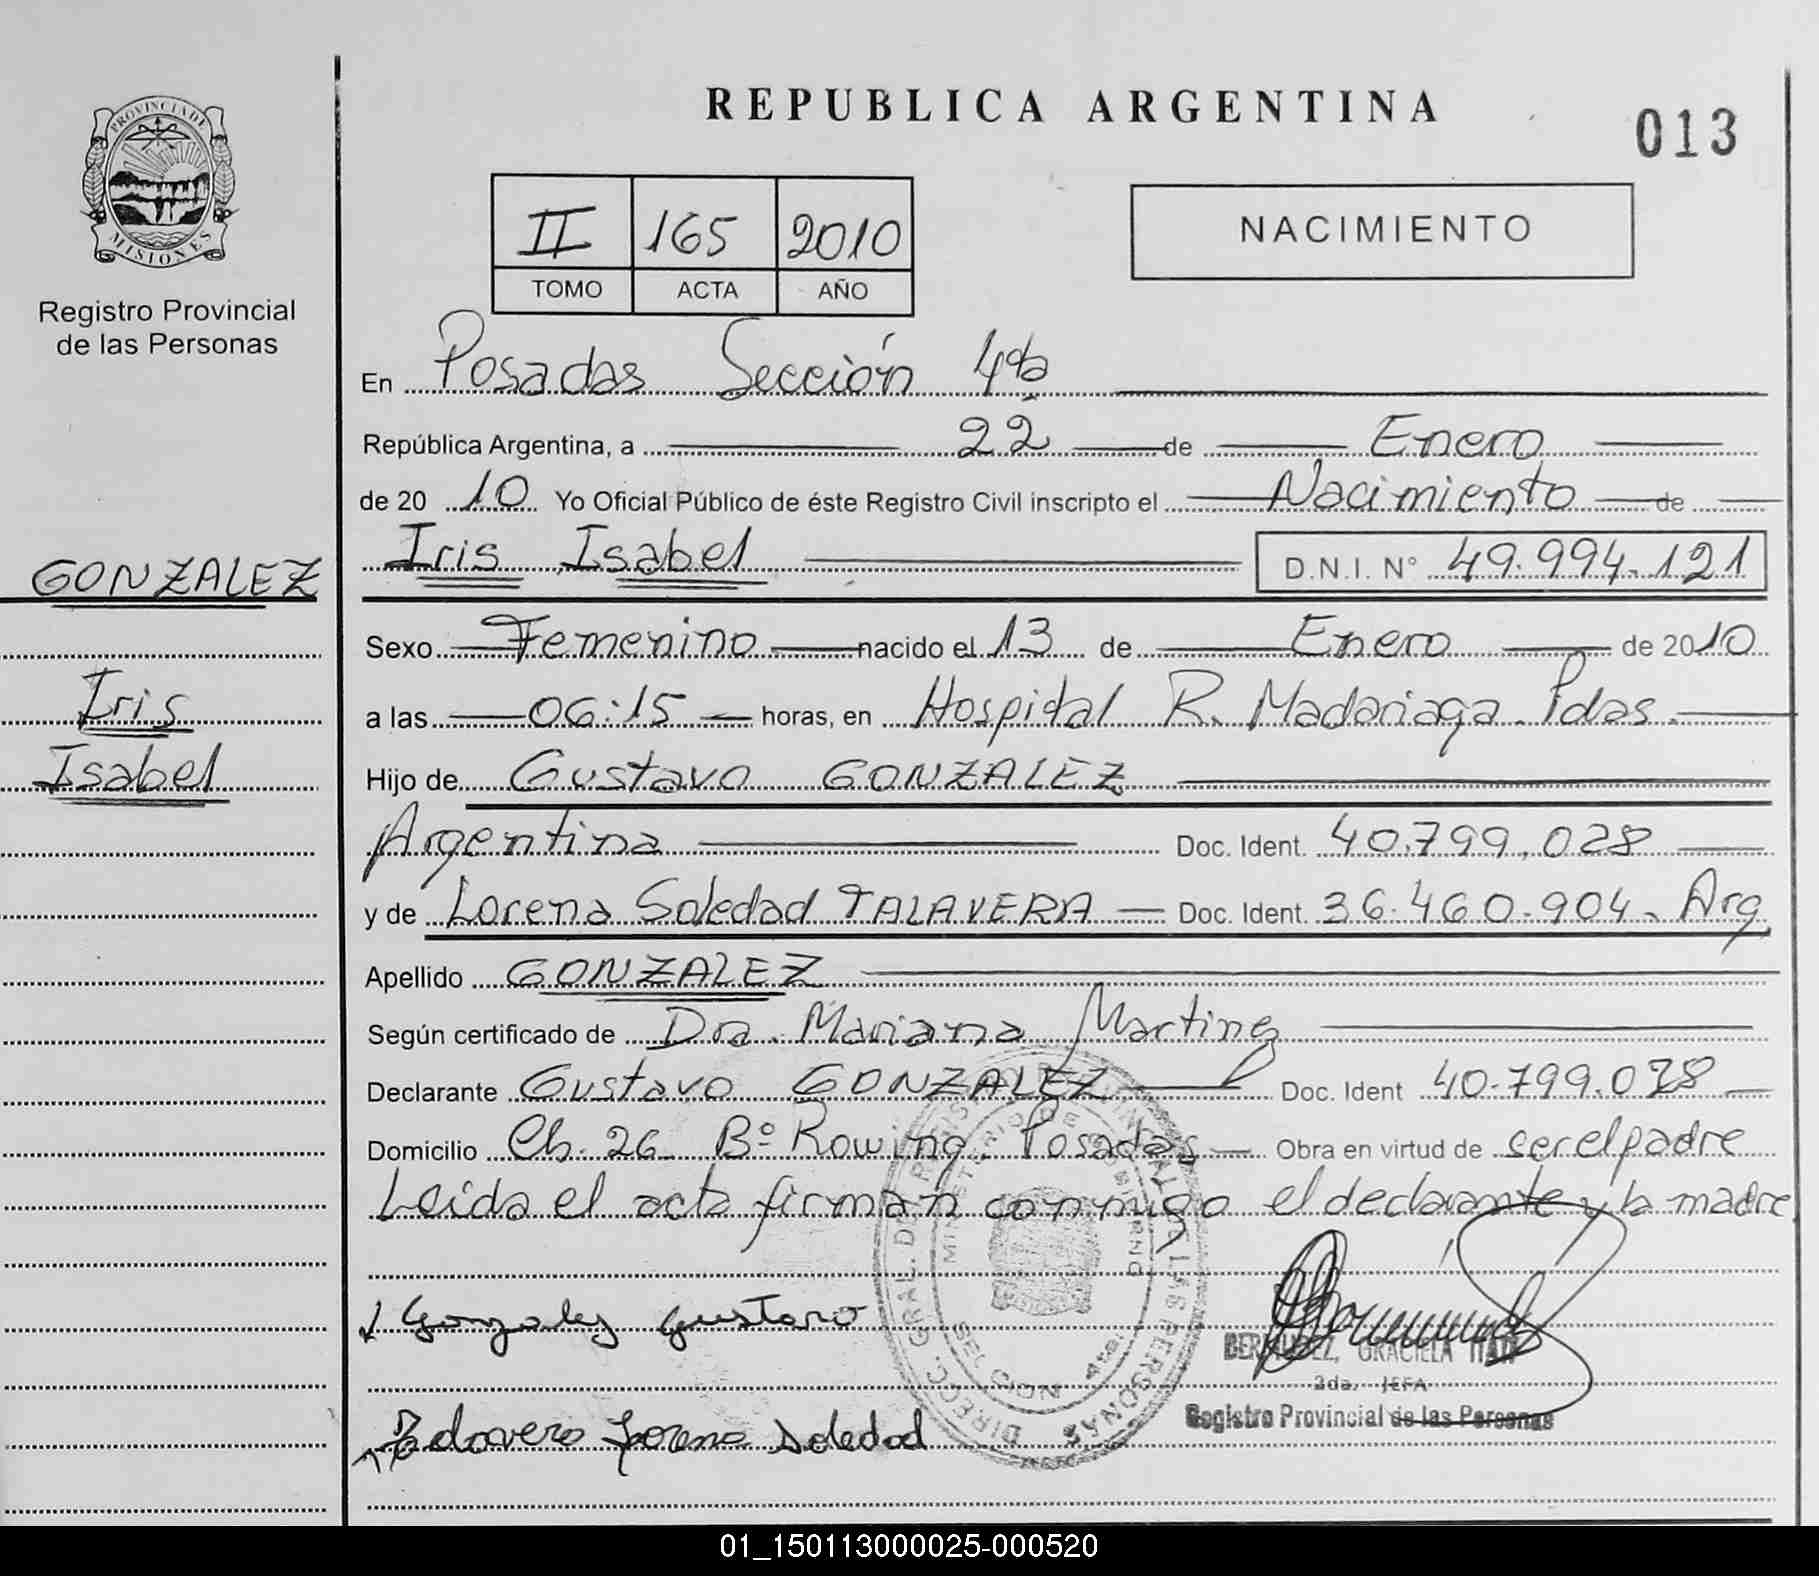 PROVINCIA DE
MISIONES
Registro Provincial
de las Personas
GONZALEZ
Iris
Isabel
REPUBLICA ARGENTINA
013
II 165 2010
TOMO ACTA AÑO
NACIMIENTO
En Posadas Sección 4ta
República Argentina, a 22 de Enero
de 2010 Yo Oficial Público de éste Registro Civil inscripto el Nacimiento de
Iris Isabel D.N.I. N° 49.994.121
Sexo Femenino nacido el 13 de Enero de 2010
a las 06:15 horas, en Hospital R. Madariaga. Pdas.
Hijo de Gustavo GONZALEZ
Argentina Doc. Ident. 40.799.028
y de Lorena Soledad TALAVERA Doc. Ident. 36.460.904. Arg
Apellido GONZALEZ
Según certificado de Dra. Mariana Martinez
Declarante Gustavo GONZALEZ Doc. Ident 40.799.028
Domicilio Ch. 26 Bº Rowing. Posadas Obra en virtud de ser el padre
Leida el acta firman conmigo el declarante y la madre
Gonzalez Gustavo
BERMUDEZ, GRACIELA ITATI
2da. JEFA
Registro Provincial de las Personas
Lorena Soledad
DIRECC. GRAL. DE LAS PERSONAS
MINISTERIO DE GOBIERNO
SECCION 4ta.
01_150113000025-000520